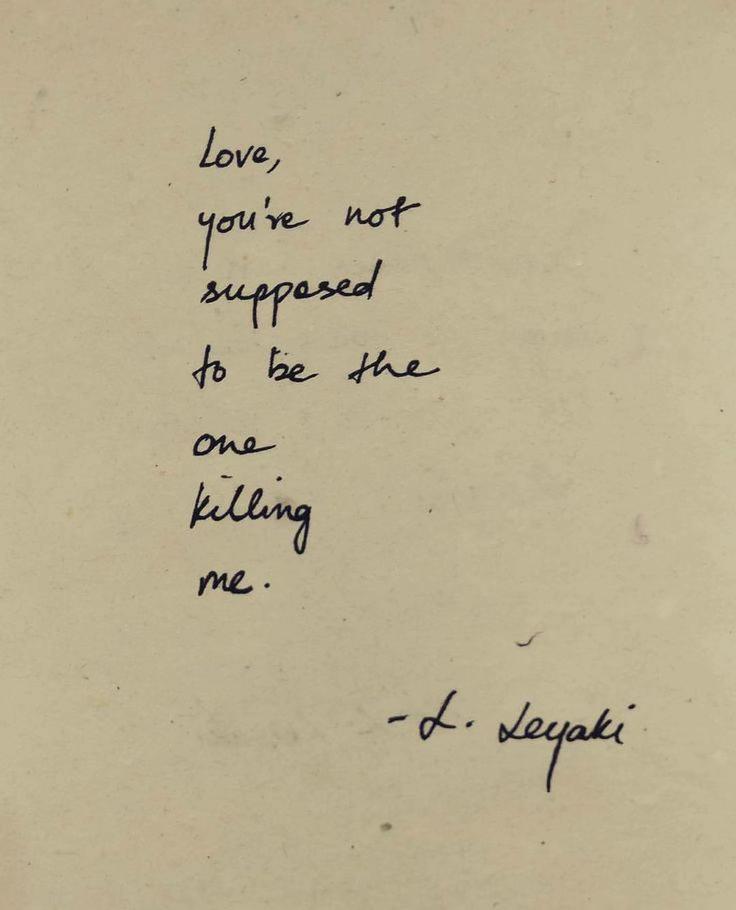 Love,
you're not
supposed
to be the
one
killing
me.
-L. Leyaki